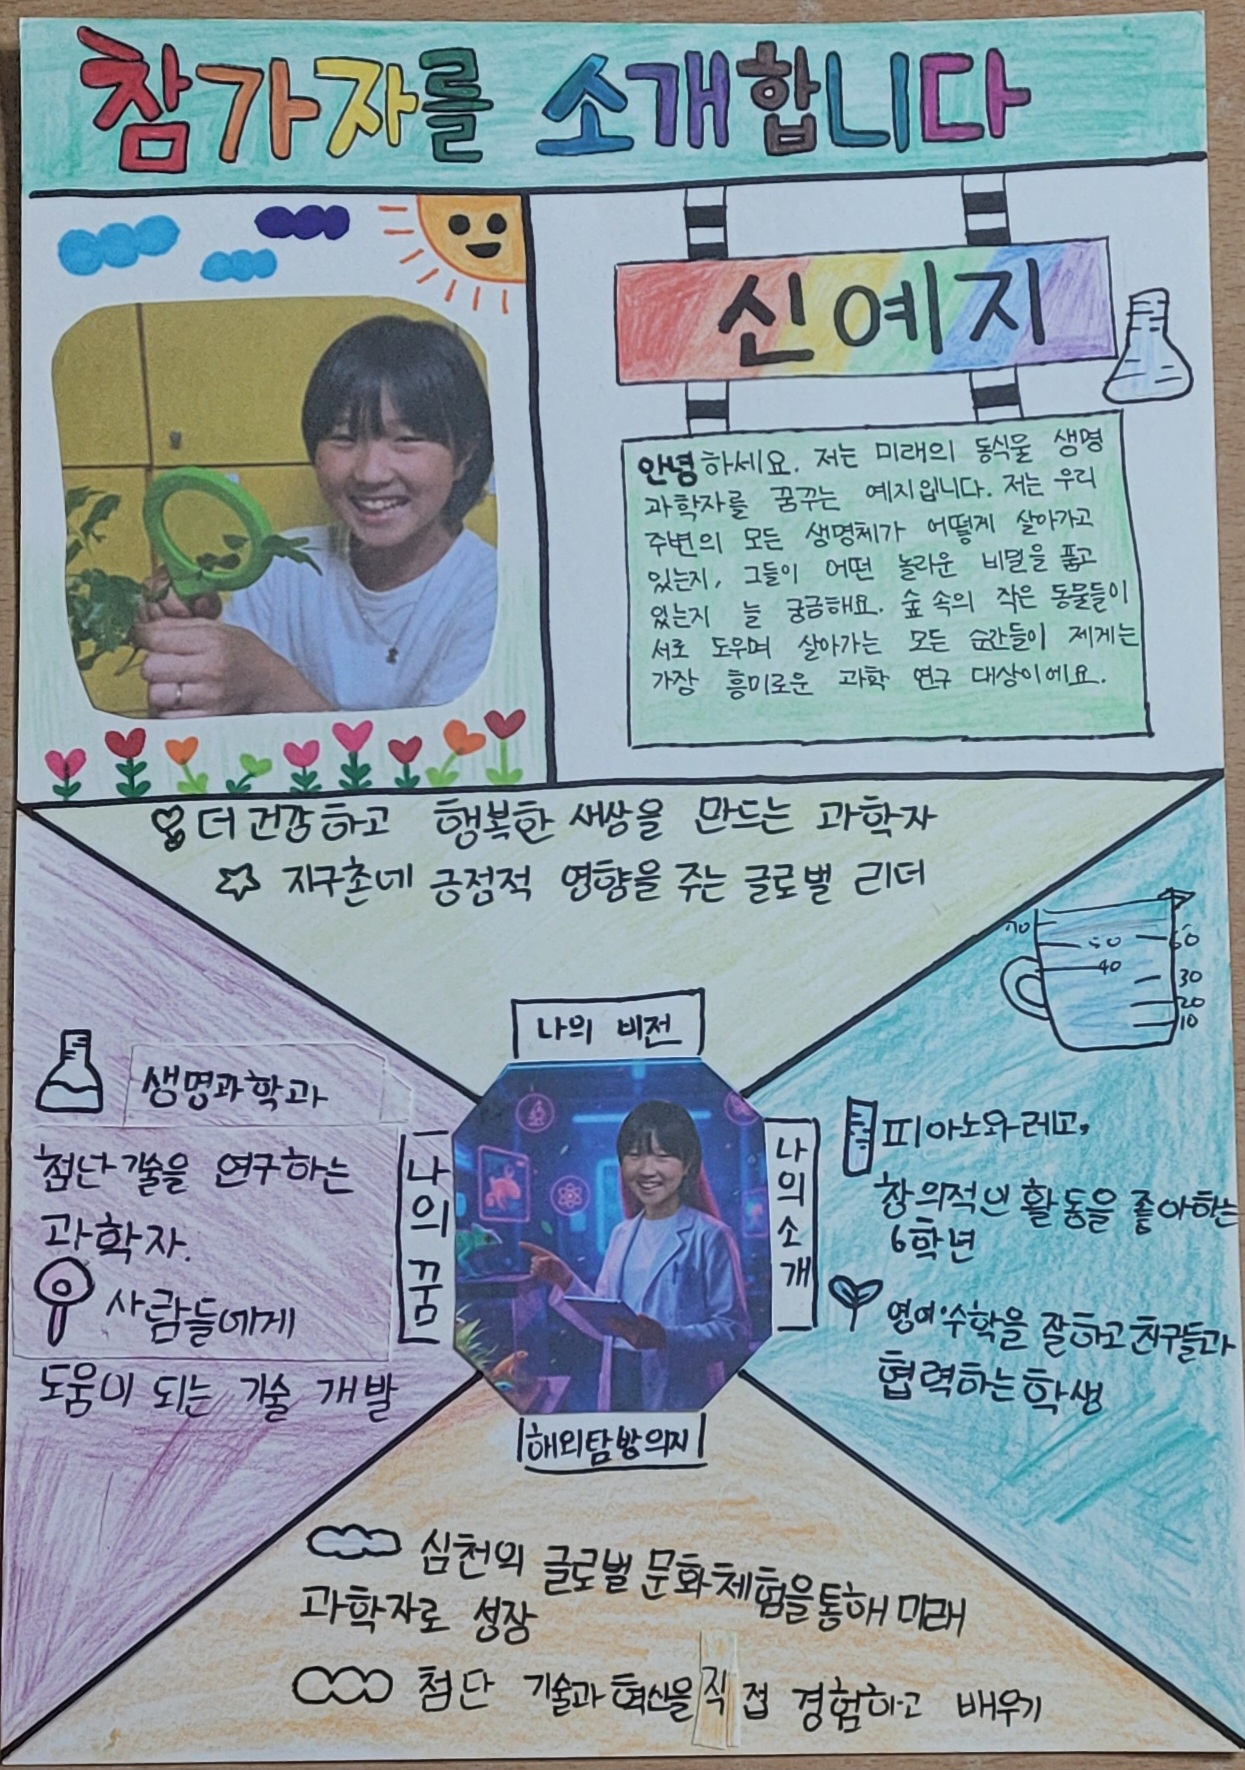 참가자를 소개합니다
신예지
안녕하세요. 저는 미래의 동식물 생명
과학자를 꿈꾸는 예지입니다. 저는 우리
주변의 모든 생명체가 어떻게 살아가고
있는지, 그들이 어떤 놀라운 비밀을 품고
있는지 늘 궁금해요. 숲 속의 작은 동물들이
서로 도우며 살아가는 모든 순간들이 제게는
가장 흥미로운 과학 연구 대상이에요.
더 건강하고 행복한 세상을 만드는 과학자
지구촌에 긍정적 영향을 주는 글로벌 리더
나의 비전
생명과학과
첨단기술을 연구하는
과학자.
사람들에게
도움이 되는 기술 개발
나의 꿈
나의 소개
70
50
60
40
30
20
10
피아노와 레고,
창의적인 활동을 좋아하는
6학년
영어·수학을 잘하고 친구들과
협력하는 학생
해외탐방의지
심천의 글로벌 문화체험을 통해 미래
과학자로 성장
첨단 기술과 혁신을 직접 경험하고 배우기